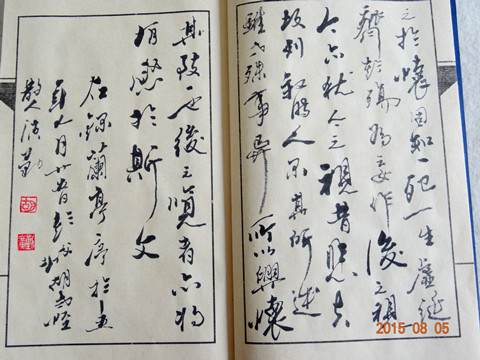 之於懷固知一死生虛誕
齊彭殤為妄作後之視
今亦猶今之視昔悲夫
故列叙時人录其所述
雖世殊事異所以興懷
其致一也後之覽者亦將
有感於斯文
右錄蘭亭序於
年八月
散人
2015 08 05